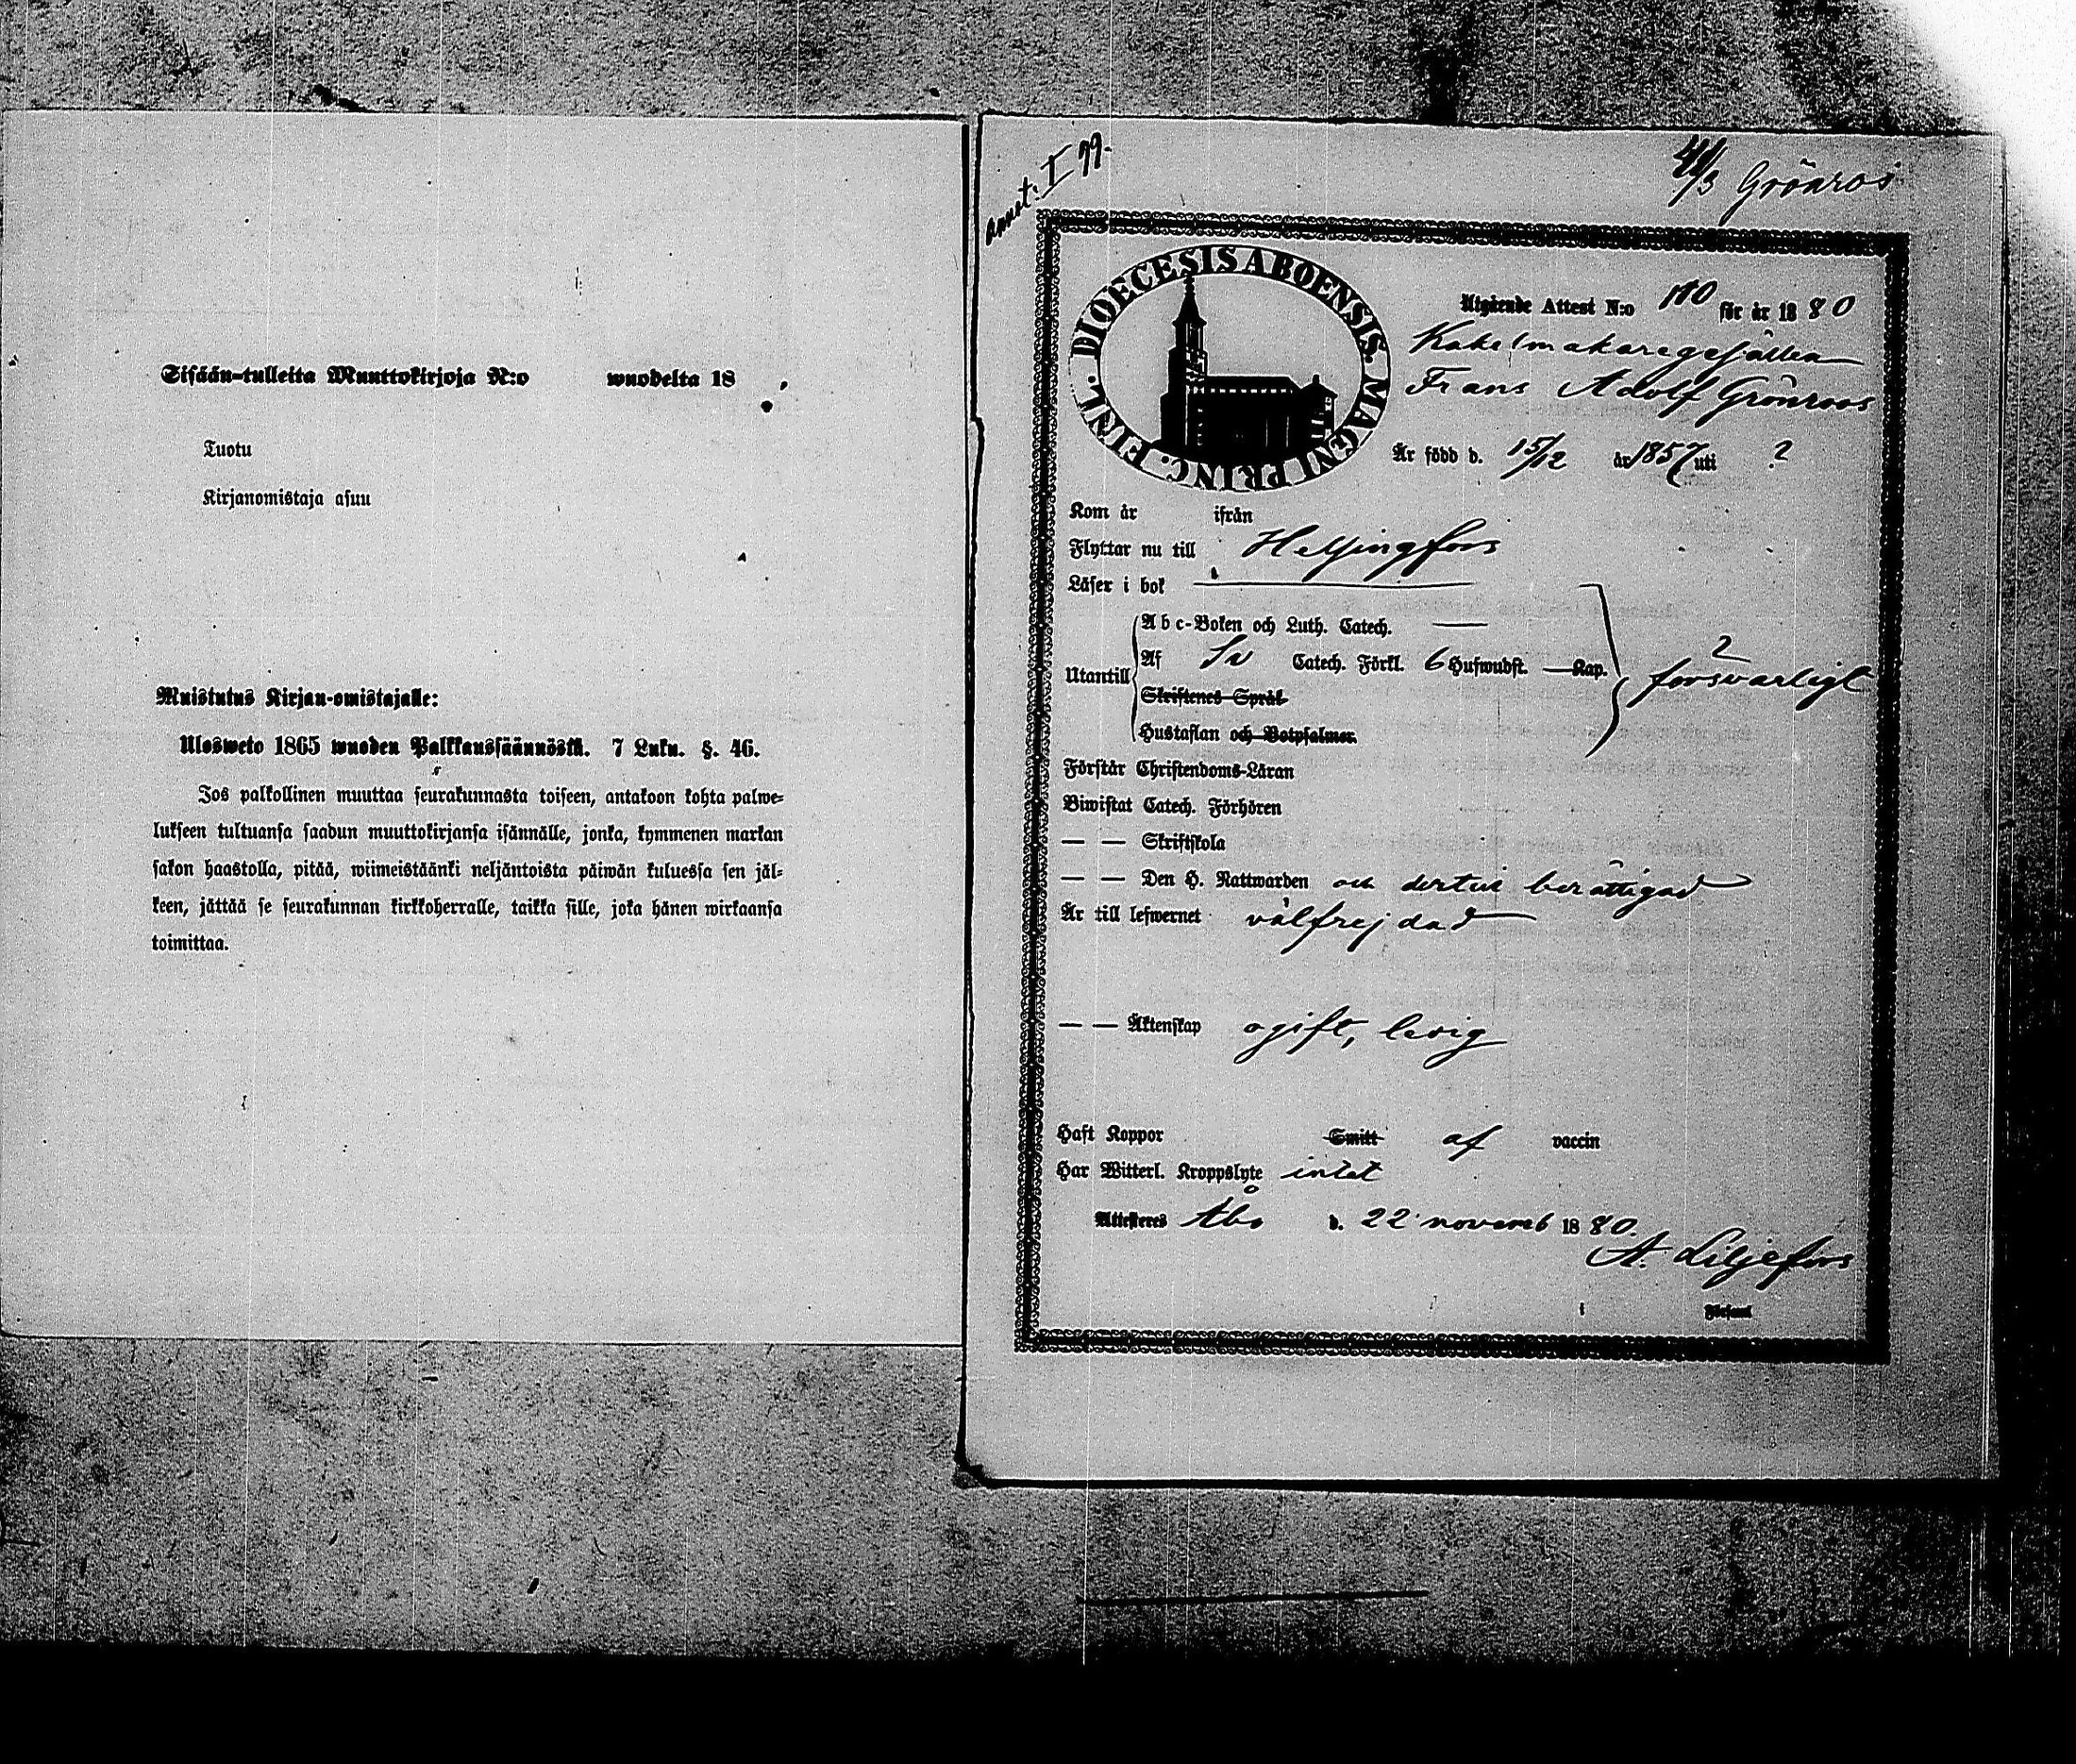 Sisään-tulleita Muuttokirjoja N:o wuodelta 18
Tuotu
Kirjanomistaja asuu
Muistutus Kirjan-omistajalle:
Ulosweto 1865 wuoden Palkkaussäännöstä. 7 Luku. §. 46.
Jos palkollinen muuttaa seurakunnasta toiseen, antakoon kohta palwe-
lukseen tultuansa saadun muuttokirjansa isännälle, jonka, kymmenen markan
sakon haastolla, pitää, wiimeistäänki neljäntoista päiwän kuluessa sen jäl-
keen, jättää se seurakunnan kirkkoherralle, taikka sille, joka hänen wirkaansa
toimittaa.
annot. I 99.
/3 Grönros
DIOECESIS ABOENSIS. MAGNI PRINC. FINL.
Utgående Attest N:o 110 för år 1880
Kakelmakaregesällen
Frans Adolf Grönroos
Är född d. 15/12 år 1857 uti ?
Kom år ifrån
Flyttar nu till Helsingfors
Läser i bok
Utantill
Abc-Boken och Luth. Catech.
Af Sv Catech. Förkl. 6 Hufwudst. Kap.
Skriftenes Språk
Hustaflan och Botpsalmer.
försvarligt
Förstår Christendoms-Läran
Biwistat Catech. Förhören
— — Skriftskola
— — Den H. Nattwarden och dertill berättigad
Är till lefwernet välfrejdad
— — Äktenskap ogift, ledig
Haft Koppor Smitt af vaccin
Har Witterl. Kroppslyte intet
Attesteras Åbo d. 22 novemb 1880.
A. Liljefors